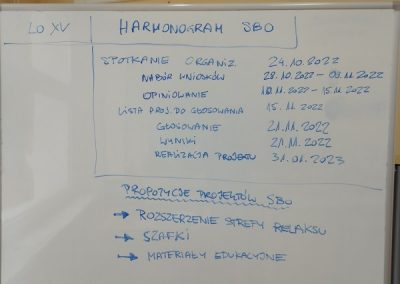 LO XV HARMONOGRAM SBO
SPOTKANIE ORGANIZ. 24.10.2022
NABÓR WNIOSKÓW 28.10.2022 - 09.11.2022
OPINIOWANIE 10.11.2022 - 15.11.2022
LISTA PROJ. DO GŁOSOWANIA 15.11.2022
GŁOSOWANIE 21.11.2022
WYNIKI 21.11.2022
REALIZACJA PROJEKTU 31.01.2023
PROPOTYCJE PROJEKTÓW SBO
→ ROZSZERZENIE STREFY RELAKSU
→ SZAFKI
→ MATERIAŁY EDUKACYJNE